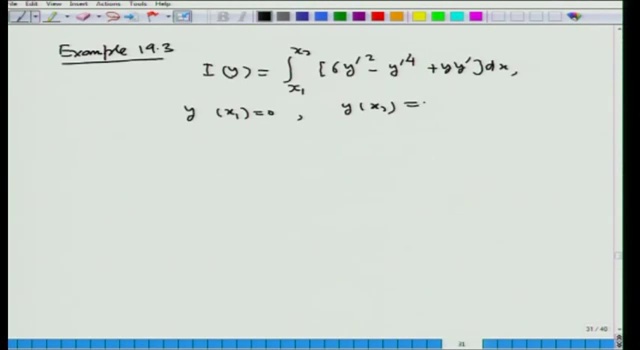 File Edit View Insert Actions Tools Help
Example 19.3
I(y) = ∫_{x₁}^{x₂} [6y'² - y'⁴ + yy'] dx,
y(x₁) = 0, y(x₂) =
31 / 40
31